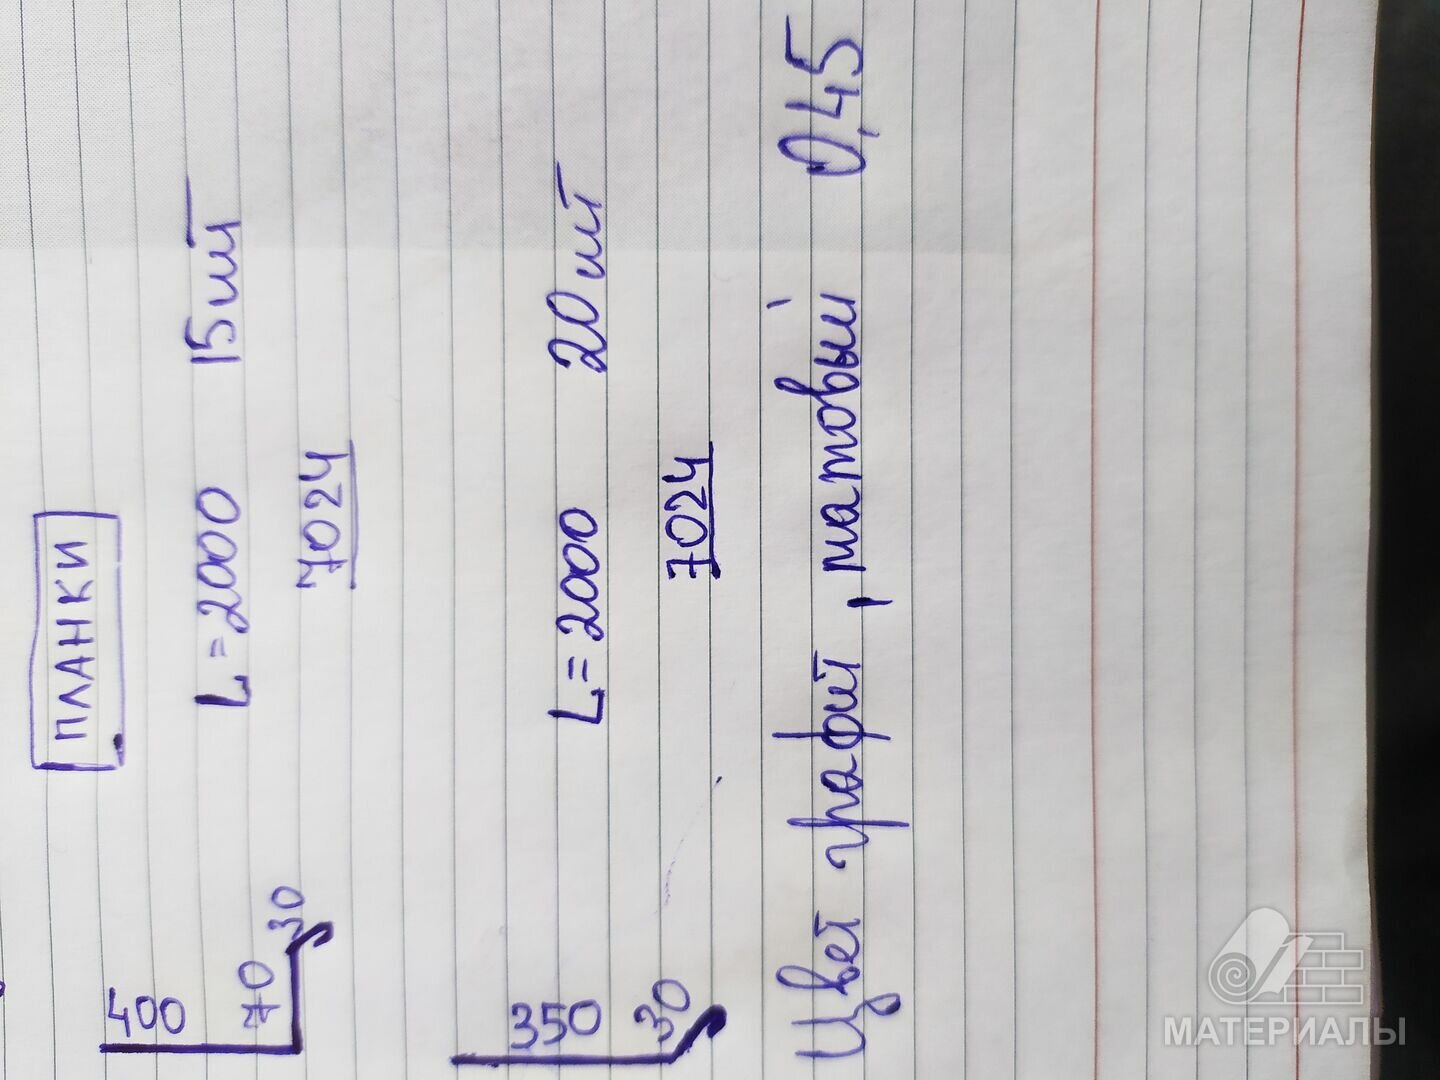 ПЛАНКИ
400 70 30 L=2000 15шт
7024
350 30 L=2000 20шт
7024
Цвет графит, матовый 0,45
МАТЕРИАЛЫ